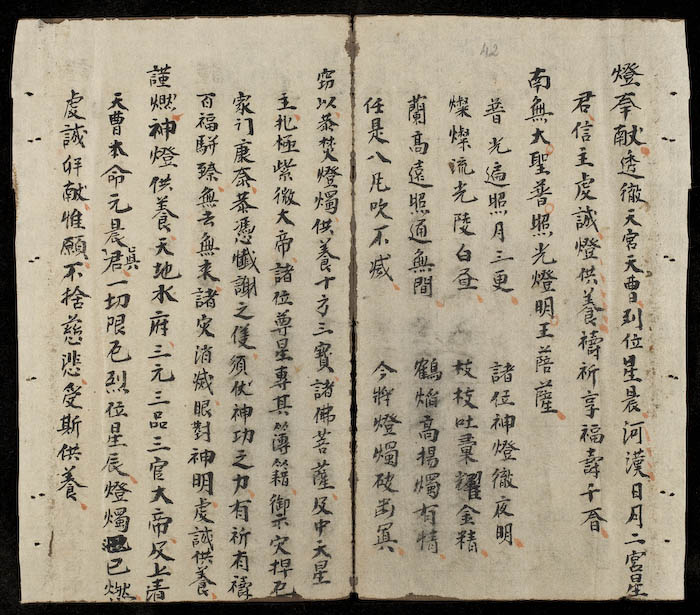 42
燈奉献透徹天宮天曹列位星晨河漢日月二宮星
君信主虔誠燈供養禱祈享福壽千春
南無大聖普照光燈明王菩薩
普光遍照月三更 諸位神燈徹夜明
燦燦流光陵白昼 枝枝吐棗耀金精
蘭高遠照通無間 鶴焰高揚燭有情
任是八风吹不滅 今將燈燭破幽冥
窃以恭焚燈燭供養十方三寶諸佛菩薩及中天星
主北極紫微大帝諸位尊星專其簿籍御示灾捍厄
家门康泰恭憑懺謝之 須伏神功之力有祈有禱
百福駢臻無去無来諸灾消滅眼對神明虔誠供養
謹燃神燈供養天地水府三元三品三官大帝及上清
天曹本命元晨真君一切限厄烈位星辰燈燭已燃
虔誠拜献惟願不捨慈悲受斯供養